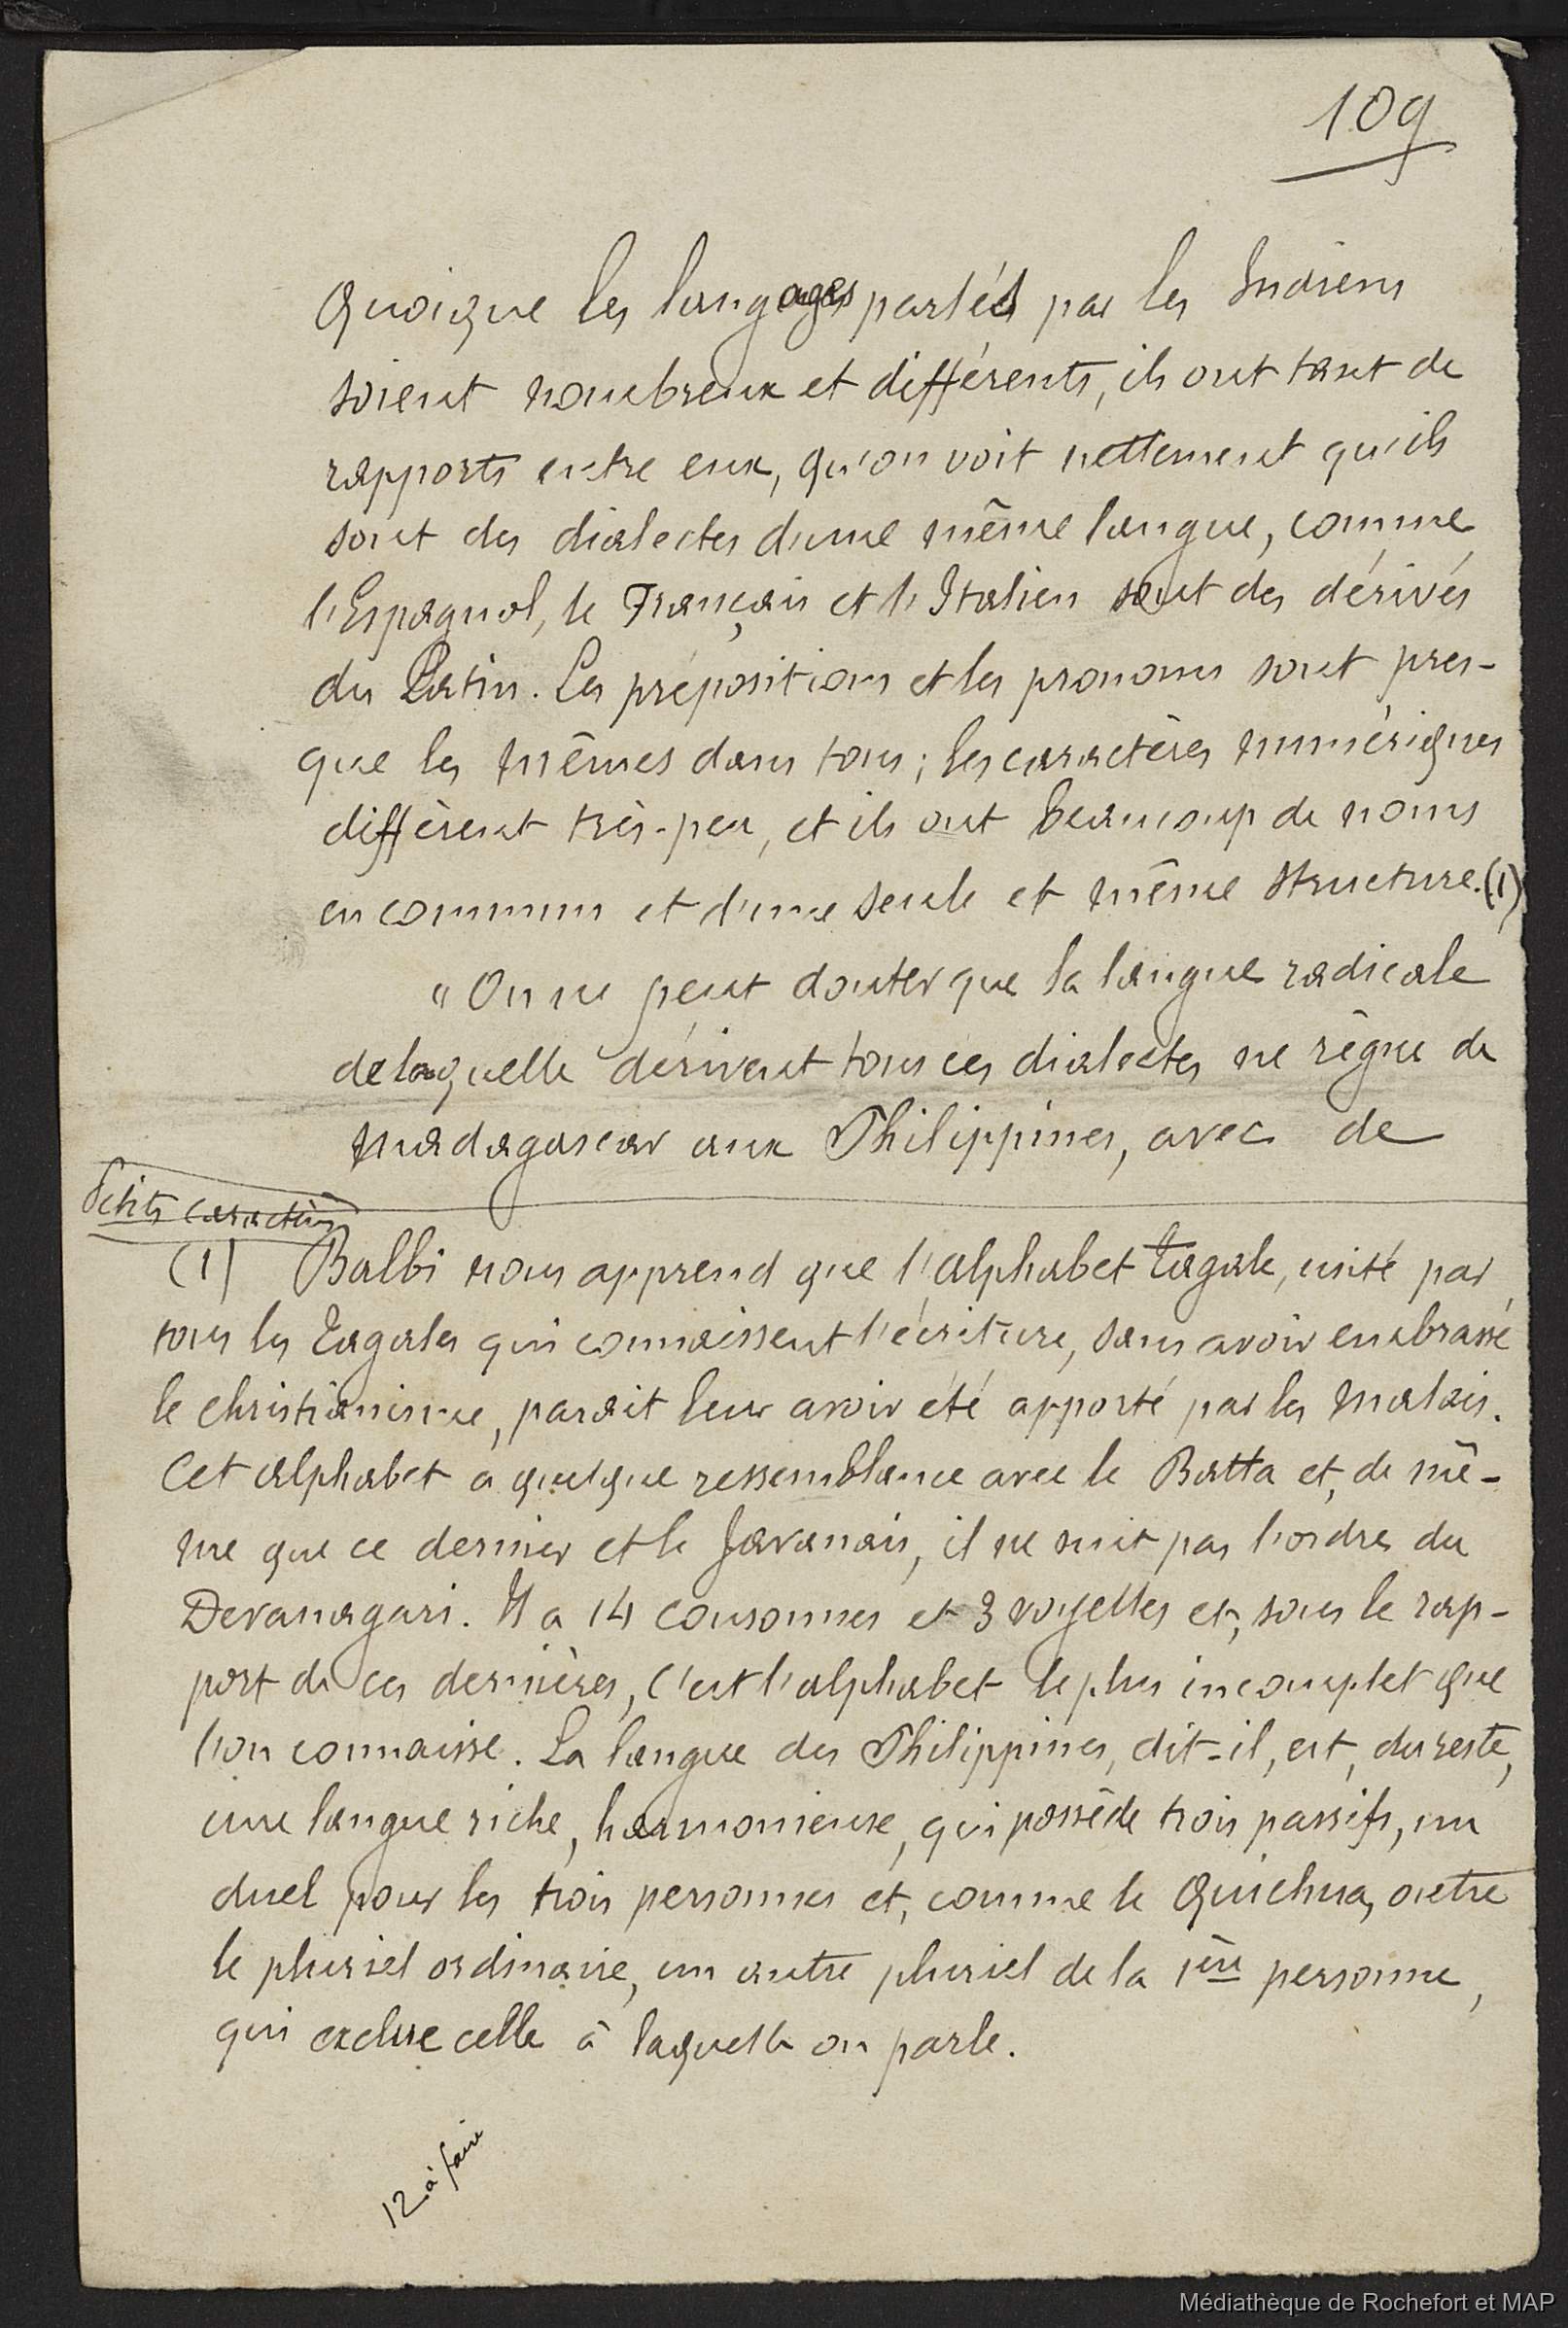 109
Quoique les langages parlés par les Indiens
soient nombreux et différents, ils ont tant de
rapports entre eux, qu'on voit nettement qu'ils
sont des dialectes d'une même langue, comme
l'Espagnol, le Français et l'Italien sont des dérivés
du Latin. Les prépositions et les pronoms sont pres-
que les mêmes dans tous; les caractères numériques
diffèrent très-peu, et ils ont beaucoup de noms
en commun et d'une seule et même structure. (1)
"On ne peut douter que la langue radicale
de laquelle dérivent tous ces dialectes ne règne de
Madagascar aux Philippines, avec de
Petits caractères
(1) Balbi nous apprend que l'alphabet Tagale, usité par
tous les Tagales qui connaissent l'écriture, sans avoir embrassé
le christianisme, parait leur avoir été apporté par les Malais.
Cet alphabet a quelque ressemblance avec le Batta et, de mê-
me que ce dernier et le Javanais, il ne suit pas l'ordre du
Devanagari. Il a 14 consonnes et 3 voyelles et, sous le rap-
port de ces dernières, c'est l'alphabet le plus incomplet que
l'on connaisse. La langue des Philippines, dit-il, est, du reste,
une langue riche, harmonieuse, qui possède trois passifs, un
duel pour les trois personnes et, comme le Quichua, outre
le pluriel ordinaire, un autre pluriel de la 1ère personne,
qui exclue celle à laquelle on parle.
12 à faire
Médiathèque de Rochefort et MAP